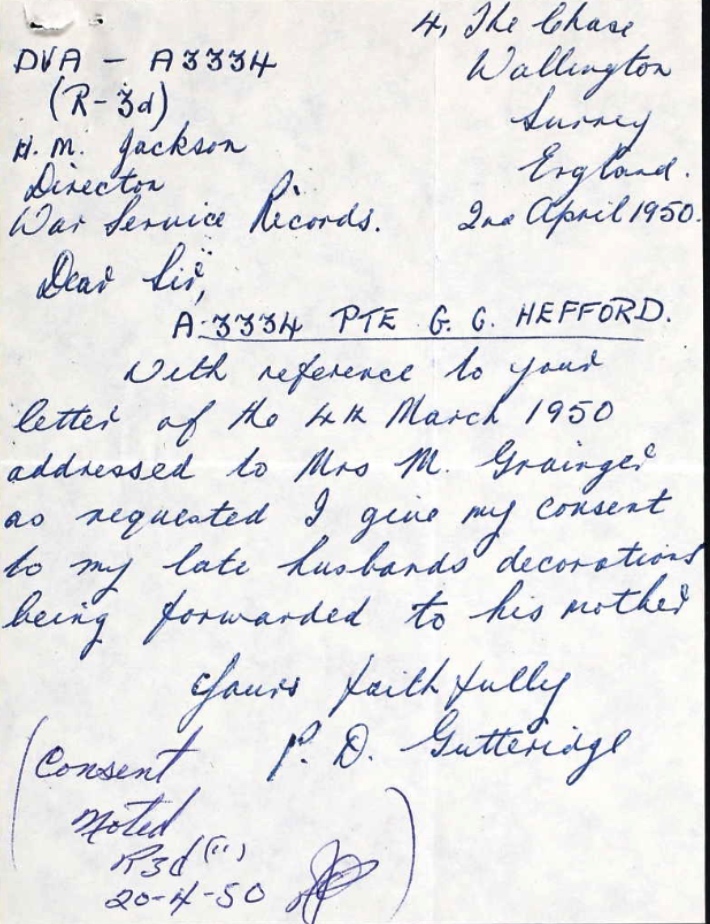 4, The Chase
Wallington
Surrey
England.
2nd April 1950.
DVA - A3334
(R-3d)
H. M. Jackson
Director
War Service Records.
Dear Sir,
A.3334 PTE G. G. HEFFORD.
With reference to your
letter of the 4th March 1950
addressed to Mrs M. Grainger
as requested I give my consent
to my late husbands decorations
being forwarded to his mother
Yours faithfully
P. D. Gutteridge
(Consent
Noted
R3d(11)
20-4-50 )